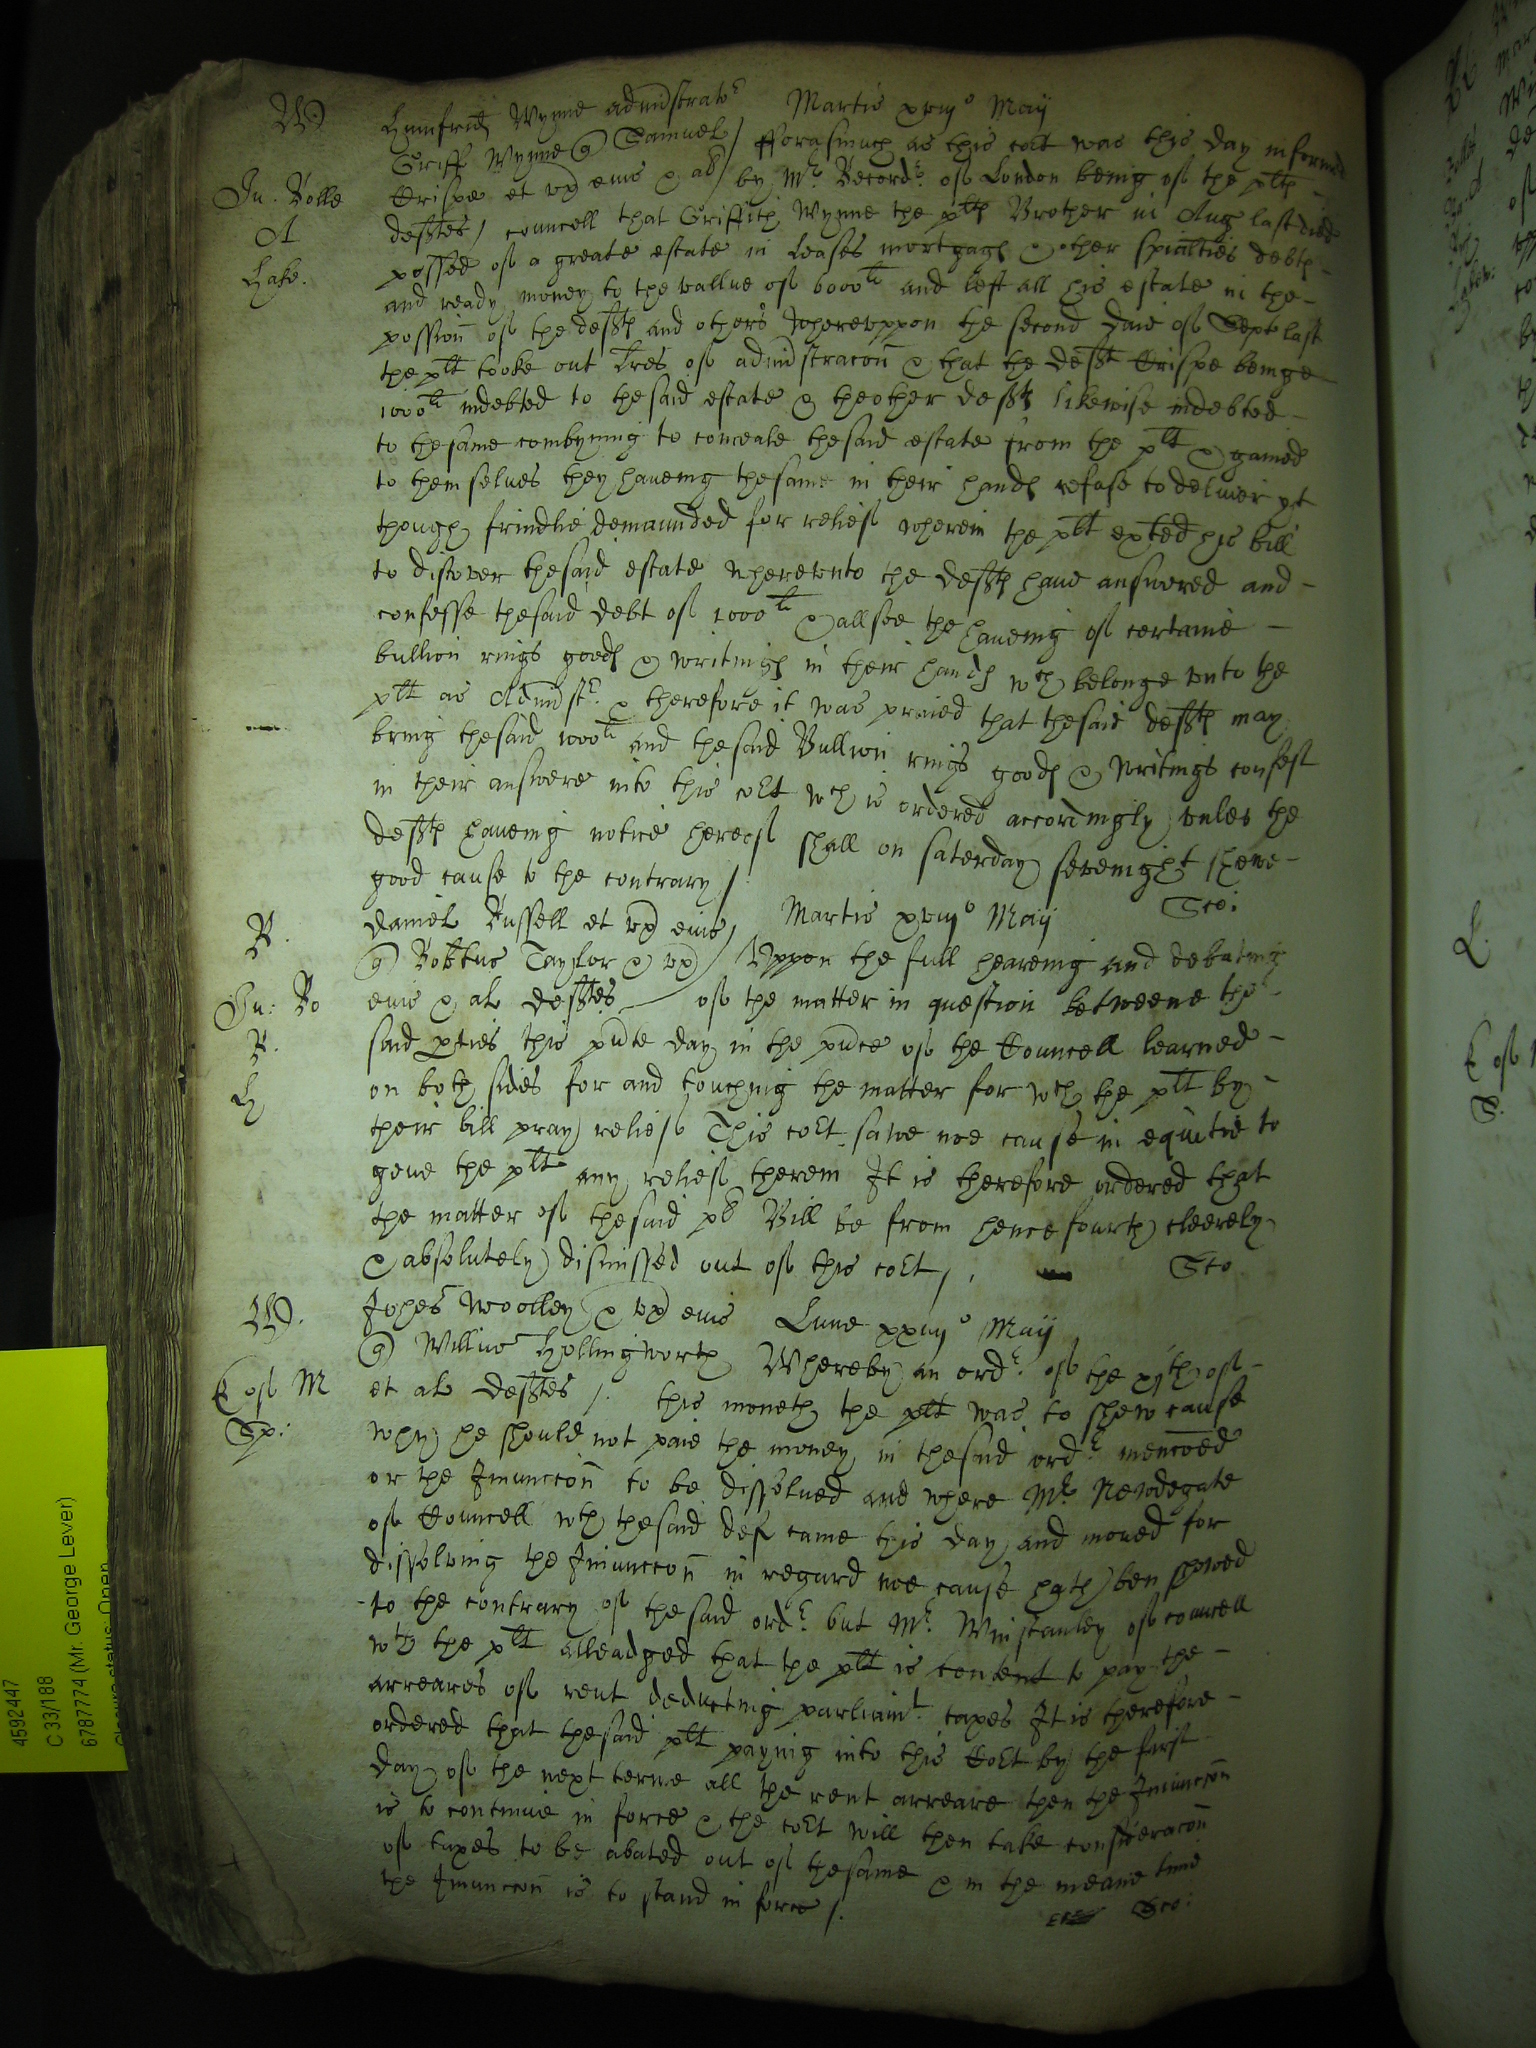 W
Humfrid Wynne administrator Martis xviijo Maij
Griff Wynne Samuel / Fforasmuch as this cort was this day informed
Crispe et ux eius & al / by Mr Recordr of London being of the plts
In. Rolle
defftes / councell that Griffith Wynne the plts Brother in Aug last died
A
possed of a greate estate in Leases mortgages & other spialties debts
Lake.
and ready money to the vallue of 6000li and left all his estate in the
possion of the defts and others whereuppon the second daie of Sept last
the plt tooke out lres of administracon & that the deft Crispe beinge
1000li indebted to the said estate & the other defts likewise indebted
to the same combyning to conceale the said estate from the plt &
to themselves they haveing the same in their hands refuse to deliver yt
though frindlie demaunded for relief wherein the plt exted his bill
to discover the said estate whereunto the defts have answered and
confesse the said debt of 1000li & allsoe the haveing of certaine
bullion rings goods & writings in their hands wch belonge unto the
plt as Administr & therefore it was praied that the said defts may
bring the said 1000li and the said Bullion rings goods & writings confest
in their answere into this cort wch is ordered accordingly unles the
defts haveing notice hereof shall on saterday sevenight shewe
good cause to the contrary /
R.
Daniel Russell et ux eius / Martis xviijo Maij
Robtus Taylor & ux / Uppon the full heareing and debating
In: Ro
eius & al defftes of the matter in question betweene the
R.
said pties this pnte day in the pnce of the Councell learned
H
on both sides for and touching the matter for wch the plt by
their bill pray relief This cort sawe noe cause in equitie to
geve the plt any relief therein It is therefore ordered that
the matter of the said plts Bill be from hence fourth cleerely
& absolutely dismissed out of this cort /.
W.
Johes Woolley & ux eius Lune Maij
Willius Hollingworth Whereby an ordr of the xjth of
E of M
et al defftes /. this moneth the plt was to shew cause
Sp:
why he should not paie the money in the said ordr menconed
or the Iniunccon to be dissolved and where Mr Newdegate
of Councell wth the said def came this day and moved for
dissolving the Iniunccon in regard noe cause hath ben shewed
to the contrary of the said ordr but Mr Winstanley of councell
wth the plt alleadged that the plt is content to pay the
arreares of rent deducting parliamt taxes It is therefore
ordered that the said plt paying into this Cort by the first
day of the next terme all the rent arreare then the Iniunccon
is to continue in force & the cort will then take consideracon
of taxes to be abated out of the same & in the meane time
the Iniunccon is to stand in force /.
4592447
C 33/188
6787774 (Mr. George Lever)
Closure status: Open